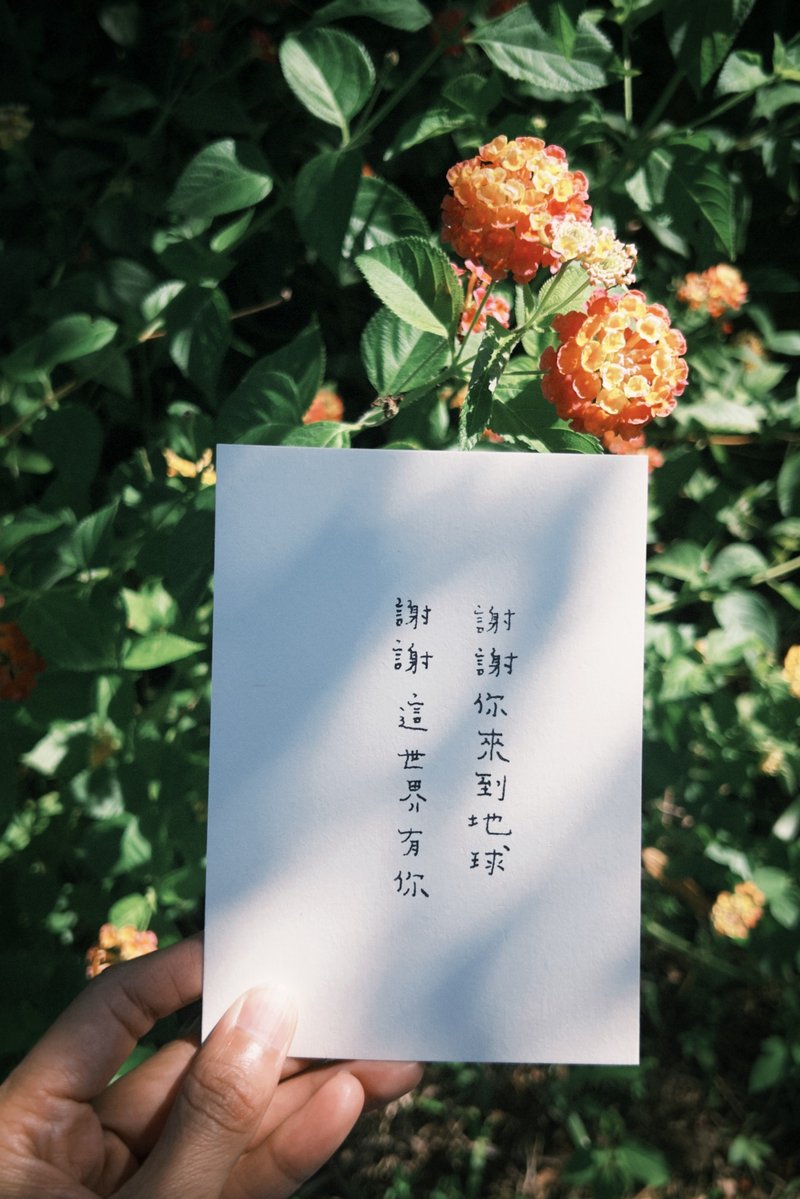 謝謝你來到地球
謝謝這世界有你